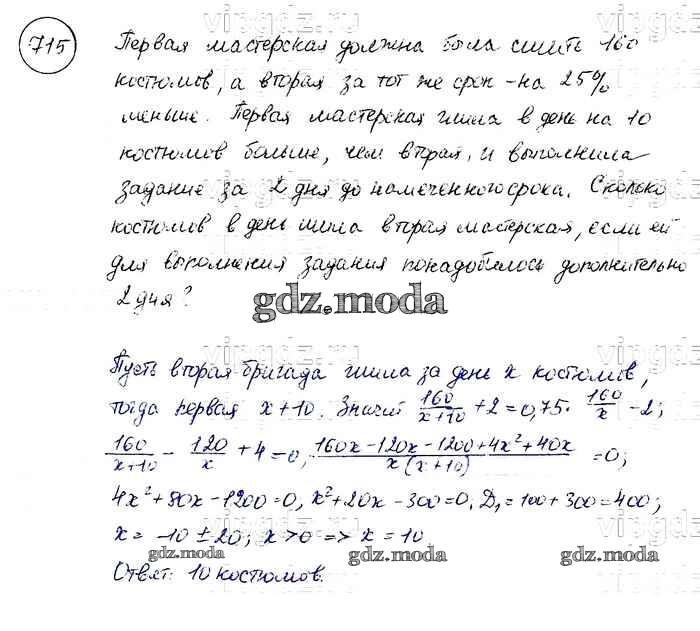 715
Первая мастерская должна была сшить 160
костюмов, а вторая за тот же срок - на 25%
меньше. Первая мастерская шила в день на 10
костюмов больше, чем вторая, и выполнила
задание за 2 дня до намеченного срока. Сколько
костюмов в день шила вторая мастерская, если ей
для выполнения задания понадобилось дополнительно
2 дня?
gdz.moda
Пусть вторая бригада шила за день x костюмов,
тогда первая x+10. Значит 160/(x+10) + 2 = 0,75 · 160/x - 2;
160/(x+10) - 120/x + 4 = 0, (160x - 120x - 1200 + 4x² + 40x)/(x(x+10)) = 0;
4x² + 80x - 1200 = 0, x² + 20x - 300 = 0. D₁ = 100 + 300 = 400;
x = -10 ± 20; x > 0 => x = 10
gdz.moda gdz.moda gdz.moda
Ответ: 10 костюмов.